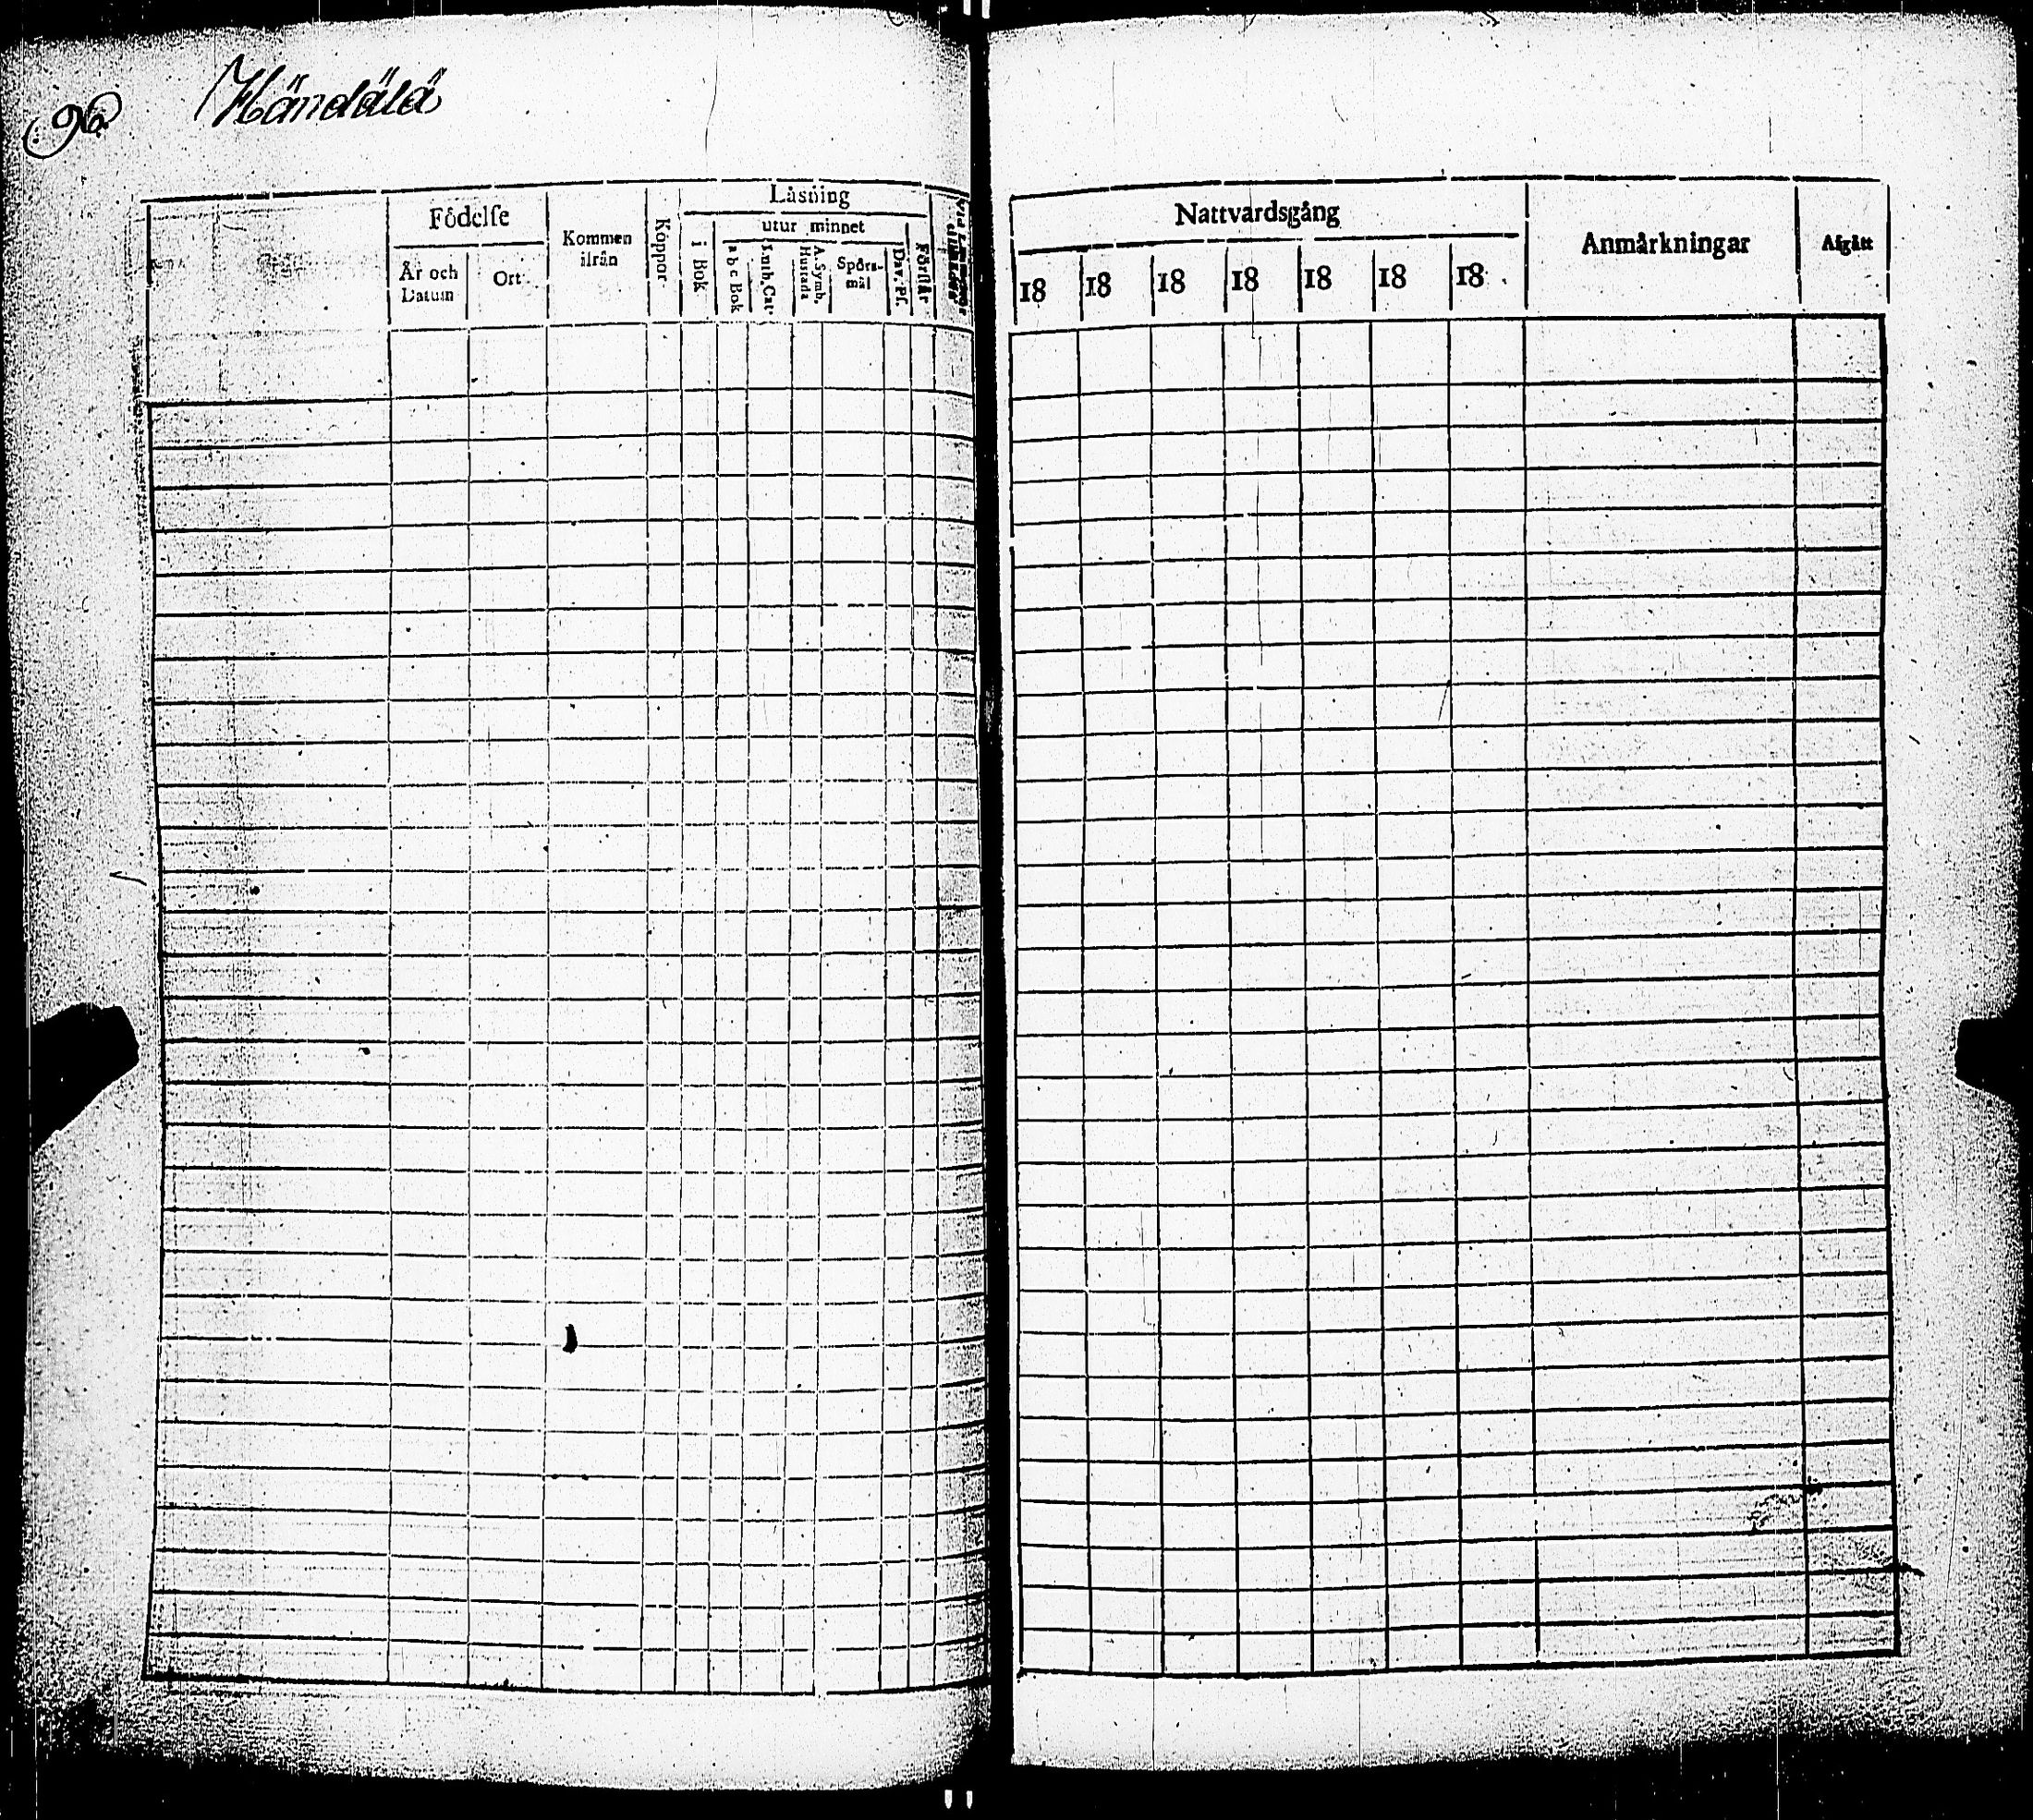 96
Händälä
Födelse
År och Datum
Ort
Kommen ifrån
Koppor
Läsning
i Bok
utur minnet
a b c Bok
Luth. Cat.
A. Symb. Hustafla
Spörs-mål
Dav. Ps.
Förstår
Nattvardsgång
18 18 18 18 18 18 18
Anmärkningar
Afgått